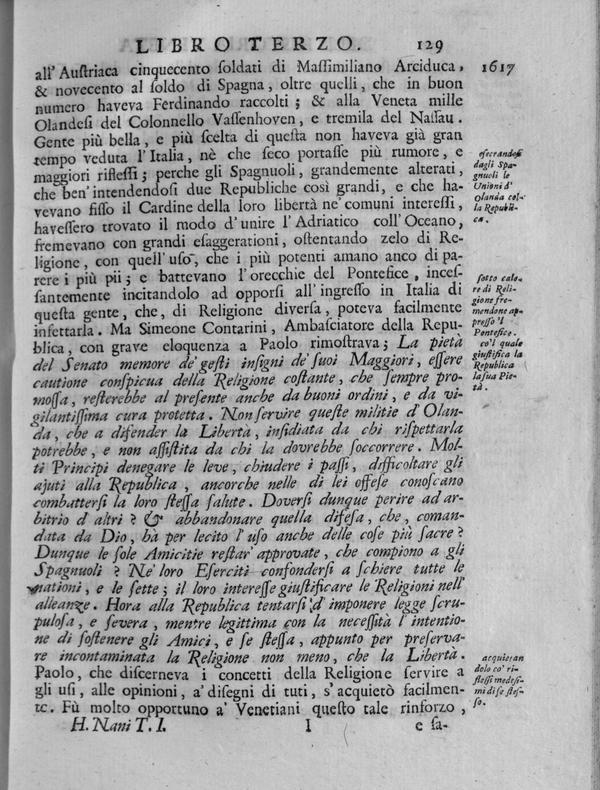 LIBRO TERZO. 129
all' Auſtriaca cinquecento ſoldati di Maſſimiliano Arciduca,
& novecento al ſoldo di Spagna, oltre quelli, che in buon
numero haveva Ferdinando raccolti; & alla Veneta mille
Olandeſi del Colonnello Vaſſenhoven, e tremila del Naſſau.
Gente più bella, e più ſcelta di queſta non haveva già gran
tempo veduta l'Italia, nè che ſeco portaſſe più rumore, e
maggiori rifleſſi; perche gli Spagnuoli, grandemente alterati,
che ben' intendendoſi due Republiche così grandi, e che ha-
vevano fiſſo il Cardine della loro libertà ne' comuni intereſſi,
haveſſero trovato il modo d'unire l'Adriatico coll' Oceano,
fremevano con grandi eſaggerationi, oſtentando zelo di Re-
ligione, con quell' uſo, che i più potenti amano anco di pa-
rere i più pii; e battevano l'orecchie del Pontefice, inceſ-
ſantemente incitandolo ad opporſi all' ingreſſo in Italia di
queſta gente, che, di Religione diverſa, poteva facilmente
infettarla. Ma Simeone Contarini, Ambaſciatore della Repu-
blica, con grave eloquenza a Paolo rimoſtrava; La pietà
del Senato memore de' geſti inſigni de' ſuoi Maggiori, eſſere
cautione conſpicua della Religione coſtante, che ſempre pro-
moſſa, reſterebbe al preſente anche da buoni ordini, e da vi-
gilantiſſima cura protetta. Non ſervire queſte militie d'Olan-
da, che a difender la Libertà, inſidiata da chi riſpettarla
potrebbe, e non aſſiſtita da chi la dovrebbe ſoccorrere. Mol-
ti Principi denegare le leve, chiudere i paſſi, difficoltare gli
ajuti alla Republica, ancorche nelle di lei offeſe conoſcano
combatterſi la loro ſteſſa ſalute. Doverſi dunque perire ad ar-
bitrio d'altri? & abbandonare quella difeſa, che, coman-
data da Dio, hà per lecito l'uſo anche delle coſe più ſacre?
Dunque le ſole Amicitie reſtar' approvate, che compiono a gli
Spagnuoli? Ne' loro Eſerciti confonderſi a ſchiere tutte le
nationi, e le ſette; il loro intereſſe giuſtificare le Religioni nell'
alleanze. Hora alla Republica tentarſi d'imporre legge ſcru-
puloſa, e ſevera, mentre legittima con la neceſſità l'intentio-
ne di ſoſtenere gli Amici, e ſe ſteſſa, appunto per preſerva-
re incontaminata la Religione non meno, che la Libertà.
Paolo, che diſcerneva i concetti della Religione ſervire a
gli uſi, alle opinioni, a' diſegni di tuti, s'acquietò facilmen-
te. Fù molto opportuno a' Venetiani queſto tale rinforzo,
H. Nani T. I. I e ſa-
1617
eſecrandoſi
dagli Spa-
gnuoli le
Unioni d'
Olanda col-
la Republi-
ca.
ſotto calo-
re di Reli-
gione fre-
mendone ap-
preſſo 'l
Pontefice.
co'l quale
giuſtifica la
Republica
la ſua Pie-
tà.
acquietan
dolo co' ri-
fleſſi medeſi-
mi di ſe ſteſ-
ſo.